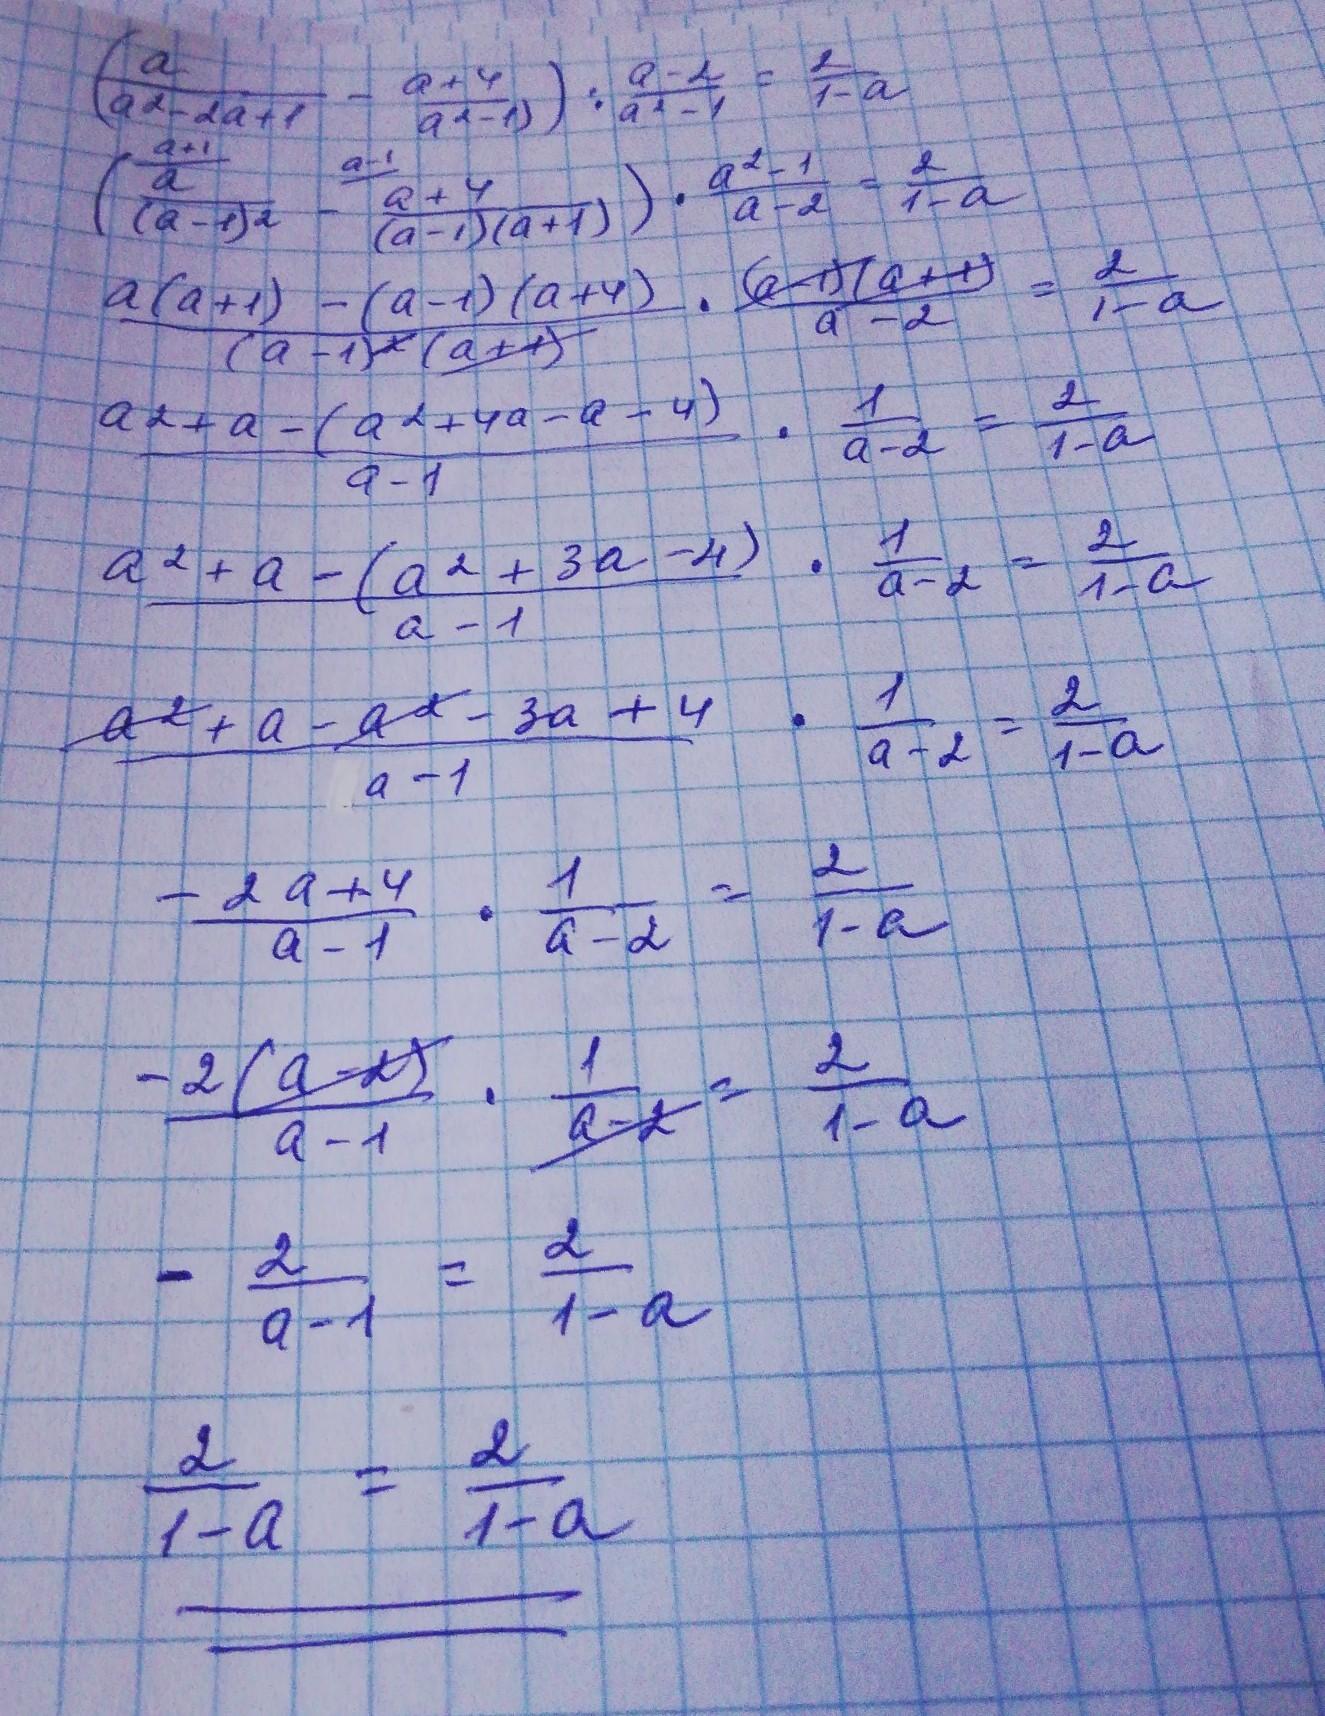 (a/(a²-2a+1) - (a+4)/(a²-1)) : (a-2)/(a²-1) = 2/(1-a)
(a+1 a/(a-1)² - a-1 (a+4)/((a-1)(a+1))) · (a²-1)/(a-2) = 2/(1-a)
(a(a+1) - (a-1)(a+4))/((a-1)²(a+1)) · ((a-1)(a+1))/(a-2) = 2/(1-a)
(a²+a-(a²+4a-a-4))/(a-1) · 1/(a-2) = 2/(1-a)
(a²+a-(a²+3a-4))/(a-1) · 1/(a-2) = 2/(1-a)
(a²+a-a²-3a+4)/(a-1) · 1/(a-2) = 2/(1-a)
(-2a+4)/(a-1) · 1/(a-2) = 2/(1-a)
(-2(a-2))/(a-1) · 1/(a-2) = 2/(1-a)
- 2/(a-1) = 2/(1-a)
2/(1-a) = 2/(1-a)